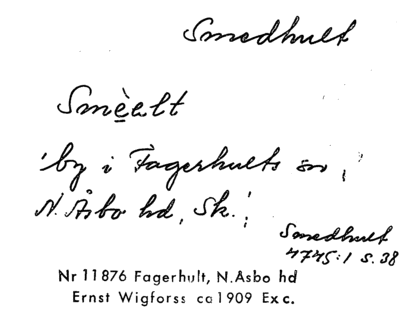 Smedhult
Smèhlt
'by i Fagerhults sn,'
N. Åsbo hd, Sk.;
Smedhult
4745:1 s. 38
Nr 11876 Fagerhult, N.Åsbo hd
Ernst Wigforss ca 1909 Exc.